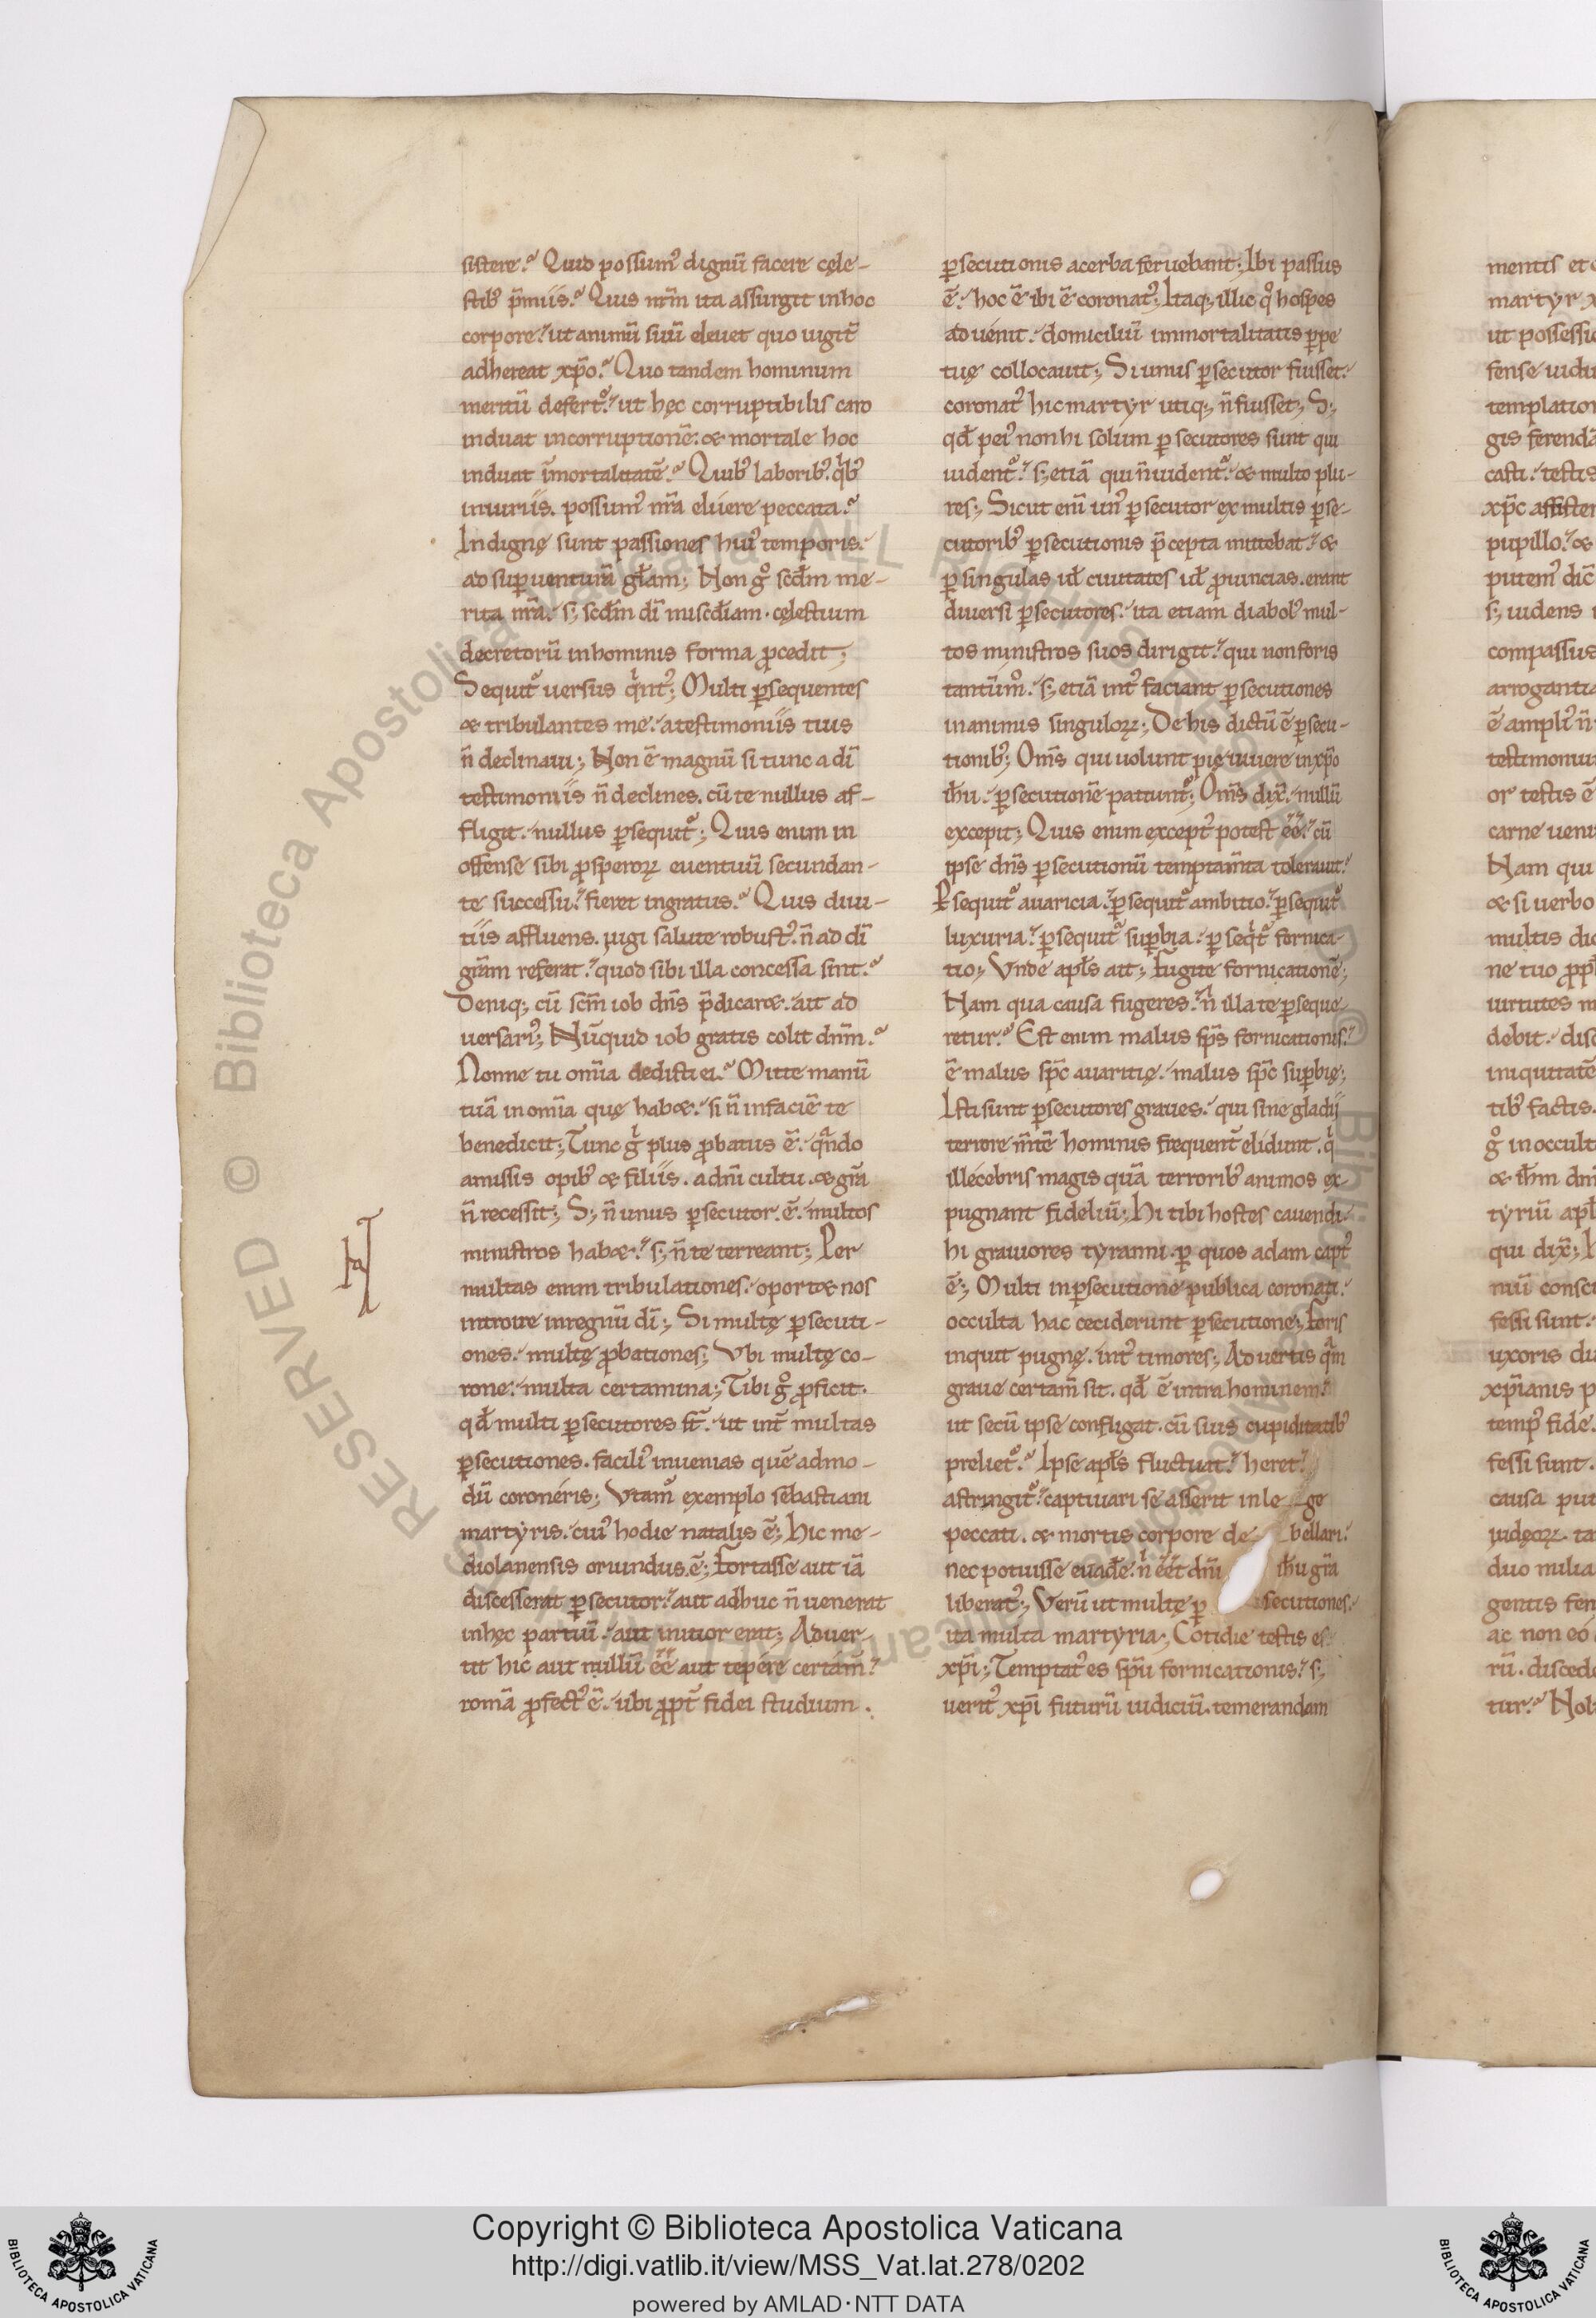 sistere. Quid possum᷒ dignū facere cęle-
stib᷒ p̄miis. Quis nr̄m ita assurgit inhoc
corpore. ut animū suū eleuet quo iugit᷑
adhereat xp̄o. Quo tandem hominum
meritū defert᷑. ut hęc corruptibilis caro
induat incorruptionē. & mortale hoc
induat īmortalitatē. Quib᷒ laborib᷒. qib᷒
iniuriis. possum᷒ nr̄a eluere peccata.
Indignę sunt passiones hui᷒ temporis.
ad sup̱uenturā gł̄am; Non gͦ scd̄m me-
rita nr̄a. s; scd̄m dī misc̄diam. cęlestium
decretorū inhominis forma ꝓcedit;
Sequit᷑ uersus qint᷒; Multi ꝑsequentes
& tribulantes me. atestimoniis tuis
n̄ declinaui; Non ē magnū si tunc a dī
testimoniis n̄ declines. cū te nullus af-
fligit. nullus ꝑsequit᷑; Quis enim in
offense sibi ꝓsperoꝝ euentuū secundan-
te successu. fieret ingratus. Quis diui-
tiis affluens. iugi salute robust᷒. n̄ ad dī
grām referat. quod sibi illa concessa sint.
Deniq; cū scm̄ iob dn̄s p̄dicar&. ait ad
uersari᷒; Nūquid iob gratis colit dnm̄.
Nonne tu om̄ia dedisti ei. Mitte manū
tuā in om̄ia quę hab&. si n̄ infaciē te
benedicit; Tunc gi plus ꝓbatus ē. qāndo
amissis opib᷒ & filiis. a dn̄i cultu. & grā
n̄ recessit; S; n̄ unus ꝑsecutor. ē. multos
ministros hab&. s; n̄ te terreant; Per
multas enim tribulationes. oport& nos
introire inregnū dī; Si multę ꝑsecuti-
ones. multę ꝓbationes; Vbi multę co-
rone. multa certamina; Tibi gͦ ꝓficit.
qd̄ multi ꝑsecutores st̄. ut int̄ multas
ꝑsecutiones. facili᷒ inuenias quē admo-
dū coroneris; Vtam᷑ exemplo sebastiani
martyris. cui᷒ hodie natalis ē; Hic me-
diolanensis oriundus. ē; Fortasse aut iā
discesserat ꝑsecutor. aut adhuc n̄ uenerat
inhęc partiū. aut mitior erat; Aduer-
tit hic aut nullū ēē aut tepére certam̄.
romā ꝓfect᷒ ē. ubi ꝓpt̄ fidei studium.
H
ꝑsecutionis acerba feruebant; Ibi passus
ē. hoc ē ibi ē coronat᷒; Itaq; illic qͦ hospes
aduénit. domiciliū immortalitatis ꝑpe
tuę collocauit; Si unus ꝑsecutor fuisset.
coronat᷒ hic martyr utiq; n̄ fuisset; S;
qd̄ pei᷒ non hi solum ꝑsecutores sunt qui
uident᷑. s; etiā qui n̄ uident᷑. & multo plu-
res; Sicut eni un᷒ ꝑsecutor ex multis ꝑse-
cutorib᷒ ꝑsecutionis p̄cepta mittebat. &
ꝑ singulas uł̄ ciuitates uł̄ ꝓuincias. erant
diuersi ꝑsecutores. ita etiam diabol᷒ mul-
tos ministros suos dirigit. qui non foris
tantūmͦ. s; etiā int᷒ faciant ꝑsecutiones
inanimis singuloꝝ; De his dictū ē ꝑsecu-
tionib᷒; Om̄s qui uolunt pię uiuere in xp̄o
ih̄u. ꝑsecutionē patiunt᷑; Om̄s dix̄. nullū
excepit; Quis enim except᷒ potest ēē. cū
ipse dn̄s ꝑsecutionū temptam̄ta tolerauit.
Ꝑsequit᷑ auaricia. ꝑsequit᷑ ambitio. ꝑsequit᷑
luxuria. ꝑsequit᷑ suꝑbia. ꝑseqit᷑ fornica-
tio; Vnde apł̄s ait; Fugite fornicationē;
Nam qua causa fugeres. ni illa te ꝑseque-
retur. Est enim malus sp̄s fornicationis.
ē malus sp̄c auaritię. malus sp̄c suꝑbię;
Isti sunt ꝑsecutores graues. qui sine gladii
terrore m̄tē hominis frequent̄ elidunt. qi
illécebris magis quā terrorib᷒ animos ex-
pugnant fideliū; Hi tibi hostes cauendi.
hi grauiores tyranni. ꝑ quos adam capt᷒
ē; Multi in ꝑsecutione publica coronati.
occulta hac ceciderunt ꝑsecutione; Foris
inquit pugnę. int᷒ timores; Aduertis qām
graue certam̄ sit. qd̄ ē intra hominem.
ut secū ipse confligat. cū suis cupiditatib᷒
preliet᷑. Ipse apł̄s fluctuat. heret.
astringit᷑. captiuari se asserit in le-ge
peccati. & mortis corpore de-bellari.
nec potuisse euade. ni eēt dn̄i ih̄u grā
liberat᷒; Verū ut multę ꝑsecutiones.
ita multa martyria; Cotidie testis es
xp̄i; Temptat᷒ es sp̄u fornicationis. s;
uerit᷒ xp̄i futurū iudiciū. temerandam
mentis et
martyr
ut possessi
fense uidu
templation
gis ferendā
casti. testis
xp̄c assister
pupillo. &
putem᷒ dic̄
s; uidens
compassus
arrogantia
ē ampli᷒ n̄
testimoniu
or testis ē
carne ueni
Nam qui
& si uerbo
multis dic
ne tuo
uirtutes
debit. disc
iniquitatē
tib᷒ factis.
gͦ in occult
& ih̄m dn
tyriū apł
qui dix̄;
niū consc
fessi sunt.
uxoris du
xp̄ianis p
temp᷒ fide.
fessi sunt.
causa put
iudęoꝝ. ta
duo milia
gentis fen
ac non eó
rū. disced
tur. Nol
© Biblioteca Apostolica Vaticana ALL RIGHTS RESERVED
Copyright © Biblioteca Apostolica Vaticana
http://digi.vatlib.it/view/MSS_Vat.lat.278/0202
powered by AMLAD·NTT DATA
BIBLIOTECA APOSTOLICA VATICANA
BIBLIOTECA APOSTOLICA VATICANA